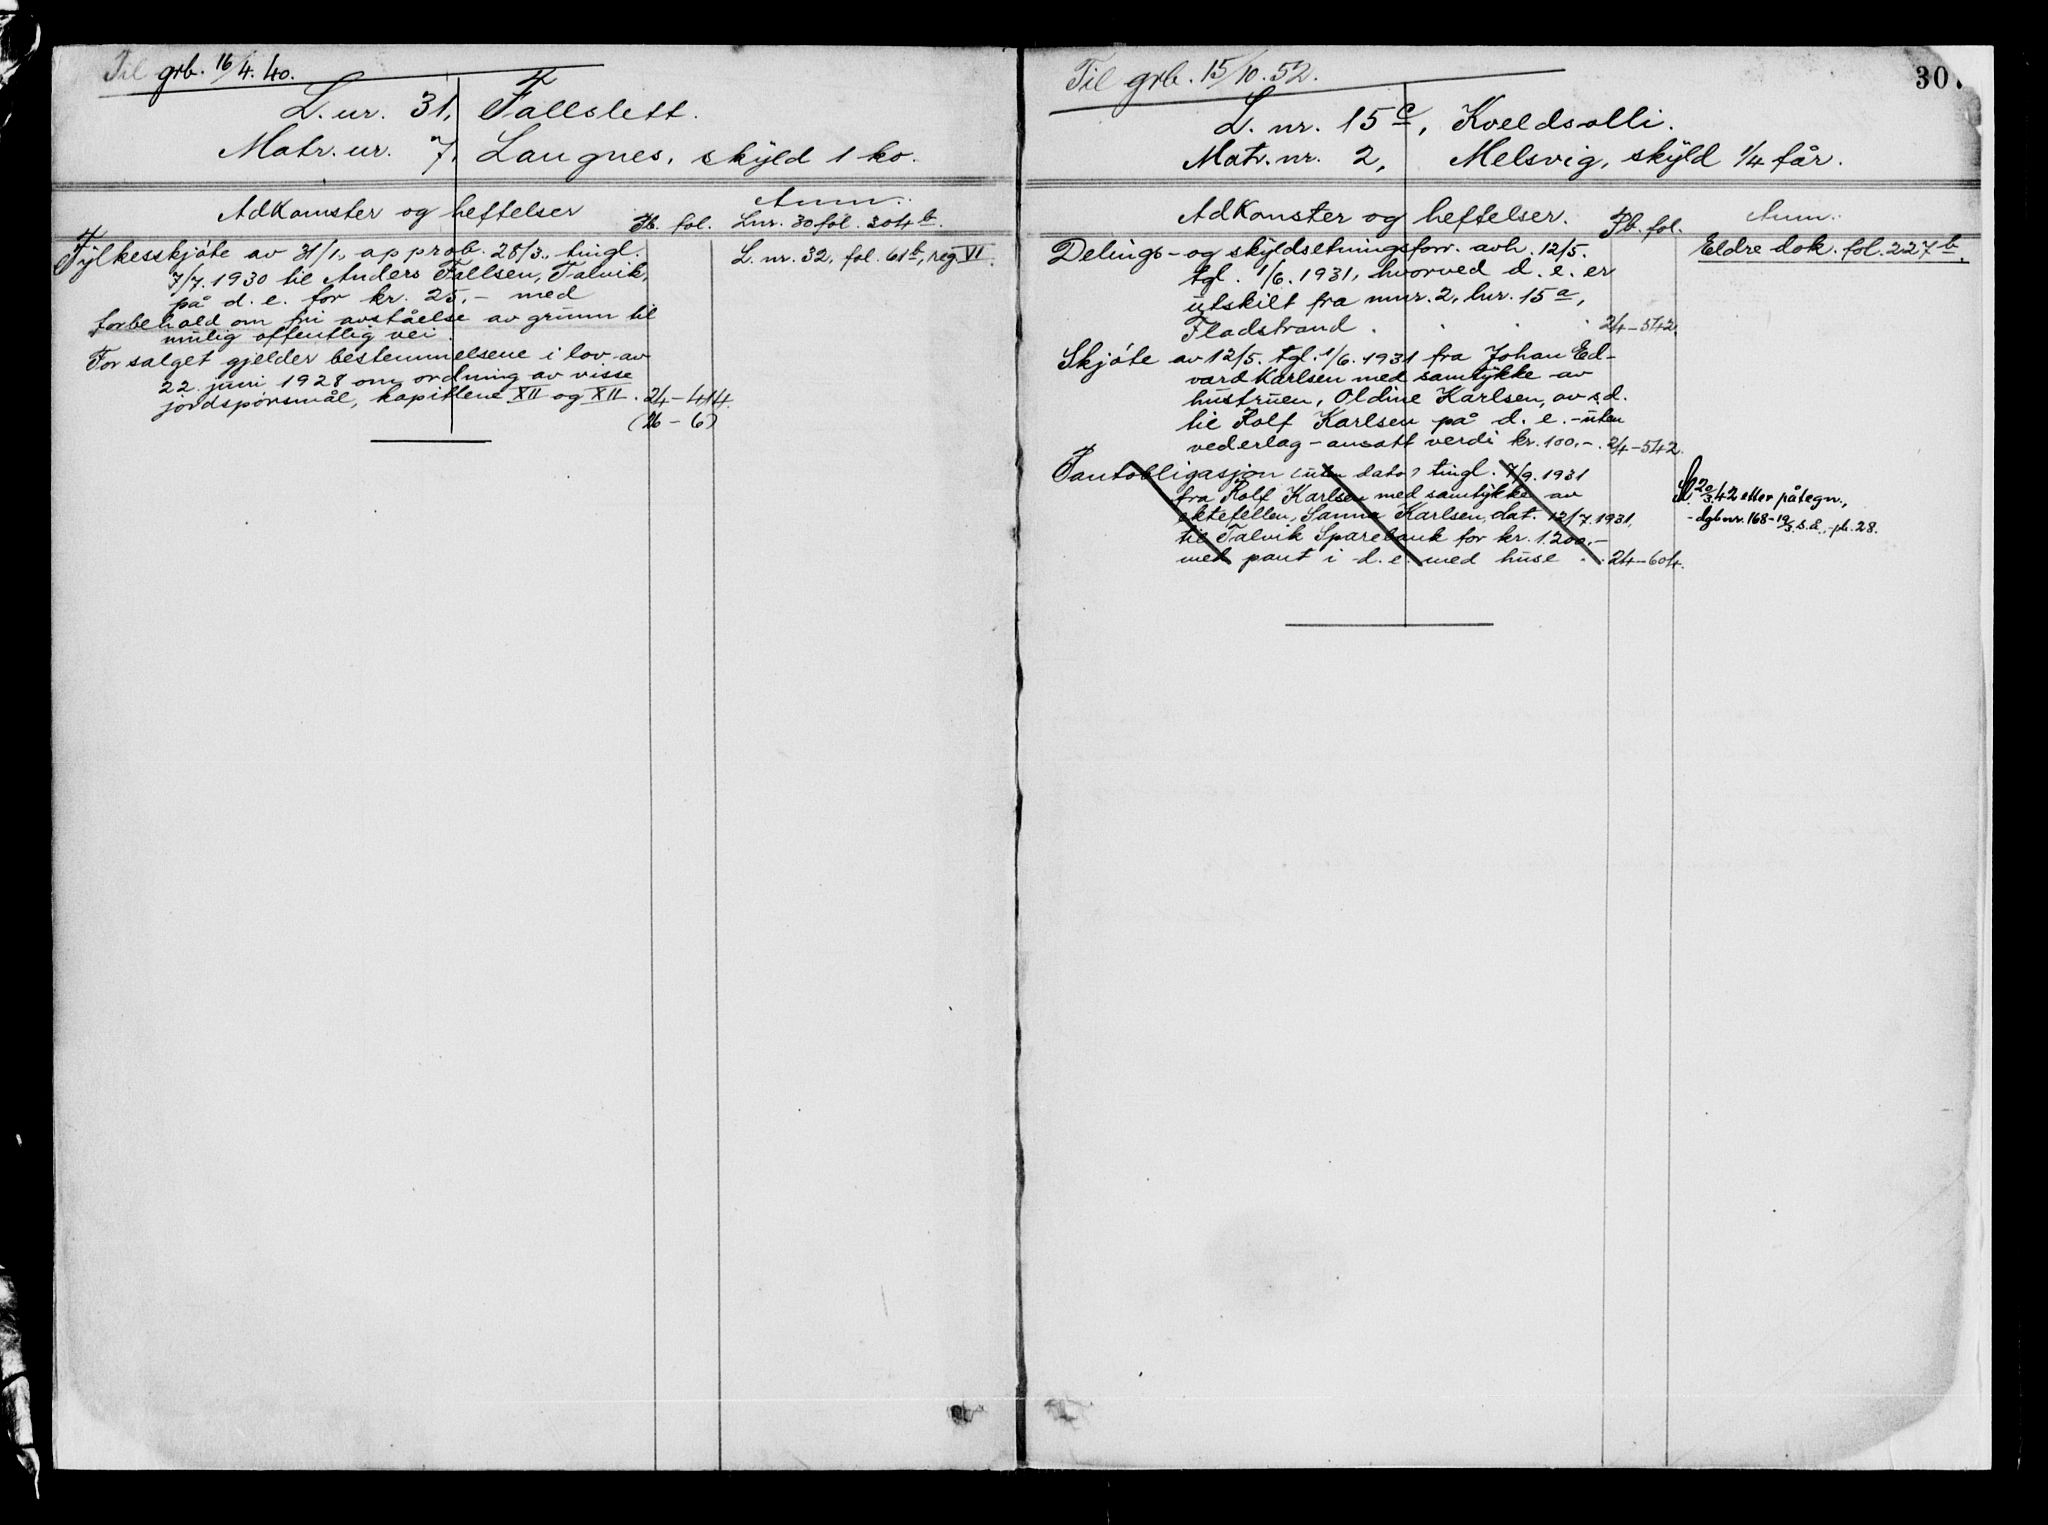 Til grb. 16/4. 40.
L. nr. 31, Fallslett.
Matr. nr. 7, Langnes, skyld 1 ko.
Adkomster og heftelser
Pb. fol.
Anm.
Lnr. 30 fol. 304 b.
Fylkesskjøte av 31/1, approb. 28/3, tingl.
L. nr. 32, fol. 61 b, reg. VI.
7/7. 1930 til Anders Fallsen, Talvik,
på d. e. for kr. 25,- med
forbehold om fri avståelse av grunn til
mulig offentlig vei
For salget gjelder bestemmelsene i lov av
22. juni 1928 om ordning av visse
jordspørsmål, kapitlene XII og XII . 24-414.
(26-6)
Til grb. 15/10. 52.
307
L. nr. 15 c, Kveldsolli.
Matr. nr. 2, Melsvig, skyld 1/4 får.
Adkomster og heftelser.
Pb. fol.
Anm.
Delings- og skyldsetningsforr. avh. 12/5.
Eldre dok. fol. 227 b.
tgl. 1/6. 1931, hvorved d. e. er
utskilt fra mnr. 2, lnr. 15 a,
Fladstrand . . . . 24-542.
Skjøte av 12/5. tgl. 1/6. 1931 fra Johan Ed-
vard Karlsen med samtykke av
hustruen, Oldine Karlsen, av s.d.
til Rolf Karlsen på d. e. - uten
vederlag - ansatt verdi kr. 100,- . 24-542.
Pantobligasjon (uten dato) tingl. 7/9. 1931
fra Rolf Karlsen med samtykke av
ektefellen, Sanna Karlsen, dat. 12/7. 1931,
til Talvik Sparebank for kr. 1200,-
med pant i d. e. med huse . . 24-604.
Sl. 20/3 42 etter påtegn.,
- dgb nr. 168-19/3 s.å., pb. 28.